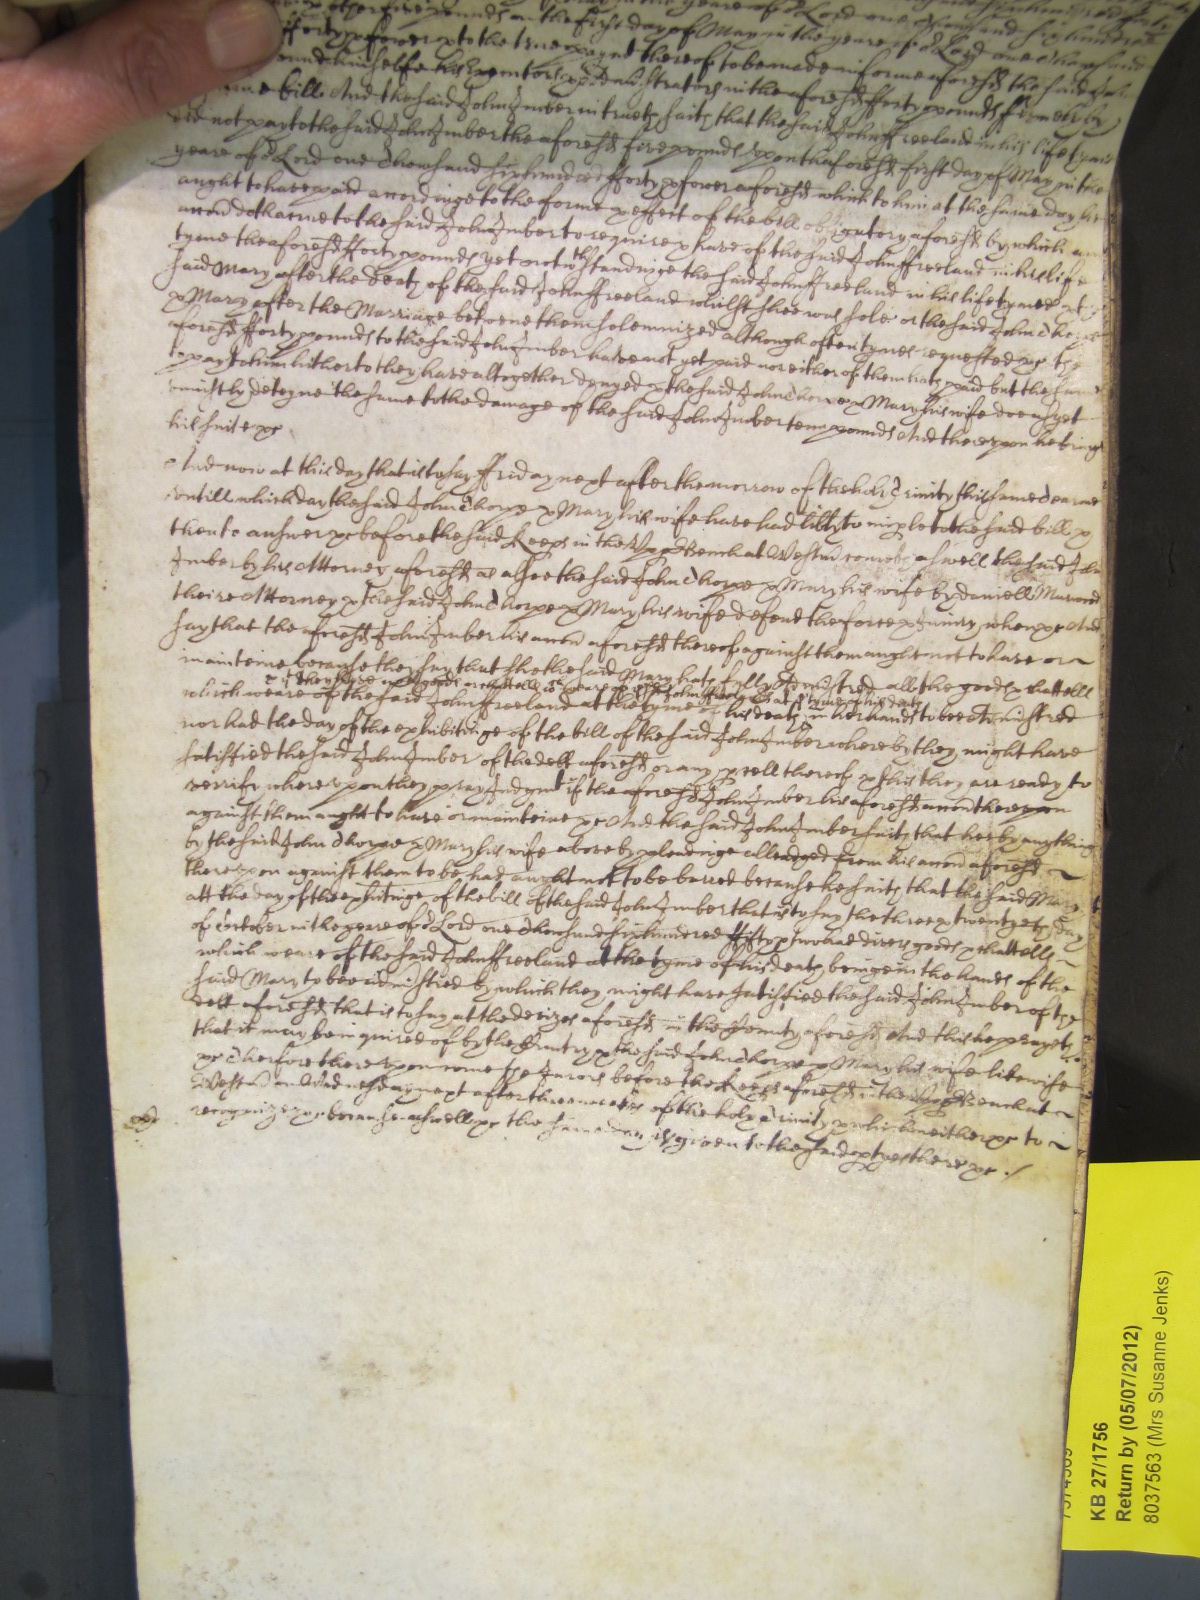 other five pounds on the first day of May in the yeare of or Lord one thousand six hundred
fforty & fower & to the true payмt thereof to be made in forme aforesd the said John
bound himselfe his Executors & Administrators in the aforesd fforty pounds firmely by
same bill And the said John Imber in truth saith that the said John ffreeland in his life tyme
did not pay to the said John Imber the aforesd five pounds upon the aforesd first day of May in the
yeare of or Lord one thowsand six hundred fforty & fower aforesd which to him at the same day he
ought to have paid accordinge to the forme & effect of the bill obligatory aforesd by which an
accon doth accrue to the said John Imber to require & have of the said John ffreeland in his life
tyme the aforesd fforty pounds yet notwthstandinge the said John ffreeland in his life tyme
said Mary after the death of the said John ffreeland whilst shee was sole or the said John Thorpe
& Mary after the Marriage betweene them solemnized although often tymes requested &c the
aforesd fforty pounds to the said John Imber have not yet paid nor either of them hath paid but the same
to pay to him hitherto they have altogether denyed & the said John Thorpe & Mary his wife doe as yet
uniustly deteyne the same to the damage of the said John Imber tenn pounds And thereupon he brings
his suite &c
And now at this day that is to say ffriday next after the morrow of the holy Trinity this same Tearme
untill which day the said John Thorpe & Mary his wife have had liberty to imple to the said bill &
then to answer &c before the said Keeps in the Upp Bench at Westm come aswell the said John
Imber by his Attorney aforesd as alsoe the said John Thorpe & Mary his wife by Daniell Marwood
theire Attorney & the said John Thorpe & Mary his wife defend the force & iniury when &c And
say that the aforesd John Imber his accon aforesd thereof against them ought not to have or
mainteine because they say that she the said Mary hath fully administred all the goods & chattells
which weare of the said John ffreeland at the tyme of his death in her hands to bee administred
nor had the day of the exhibitinge of the bill of the said John Imber whereby they might have
satisfied the said John Imber of the debt aforesd or any pcell thereof & this they are ready to
verify whereupon they pray Judgmt if the aforesd John Imber his aforesd accon thereupon
against them ought to have or mainteine &c And the said John Imber saith that hee by anything
by the said John Thorpe & Mary his wife above by pleadinge alleadged from his accon aforesd
thereupon against them to be had ought not to be barred because he saith that the said Mary
att the day of the exhibitinge of the bill of the said John Imber that is to say the three & twentyeth day
of October in the yeare of or Lord one Thowsand six hundred ffifty & two had divers goods & chattells
which weare of the said John ffreeland at the tyme of his death beinge in the hands of the
said Mary to bee administred by which they might have satisfied the said John Imber of the
debt aforesd that is to say at the devizes aforesd in the County aforesd And this he prayeth
that it may be inquired of by the Cuntry & the said John Thorpe & Mary his wife likewise
&c Therfore thereupon come the Jurors before the Keeps aforesd in the Upp Bench at
Westm on Wednesday next after three weekes of the holy Trinity & who neither &c to
recognize &c because aswell &c the same day is given to the said ptyes there &c
KB 27/1756
Return by (05/07/2012)
8037563 (Mrs Susanne Jenks)